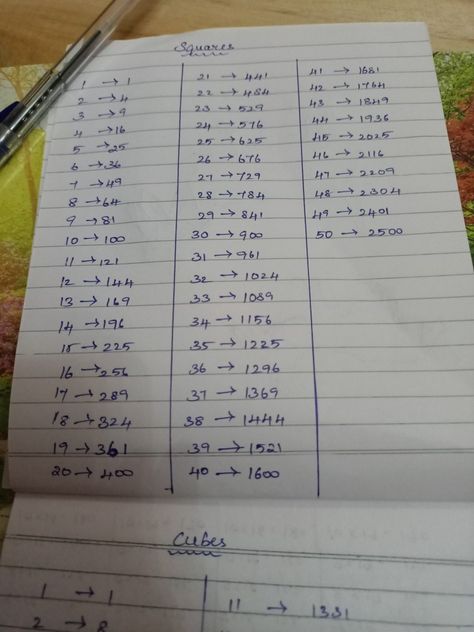 Squares
1 → 1
2 → 4
3 → 9
4 → 16
5 → 25
6 → 36
7 → 49
8 → 64
9 → 81
10 → 100
11 → 121
12 → 144
13 → 169
14 → 196
15 → 225
16 → 256
17 → 289
18 → 324
19 → 361
20 → 400
21 → 441
22 → 484
23 → 529
24 → 576
25 → 625
26 → 676
27 → 729
28 → 784
29 → 841
30 → 900
31 → 961
32 → 1024
33 → 1089
34 → 1156
35 → 1225
36 → 1296
37 → 1369
38 → 1444
39 → 1521
40 → 1600
41 → 1681
42 → 1764
43 → 1849
44 → 1936
45 → 2025
46 → 2116
47 → 2209
48 → 2304
49 → 2401
50 → 2500
Cubes
1 → 1
2 → 8
11 → 1331